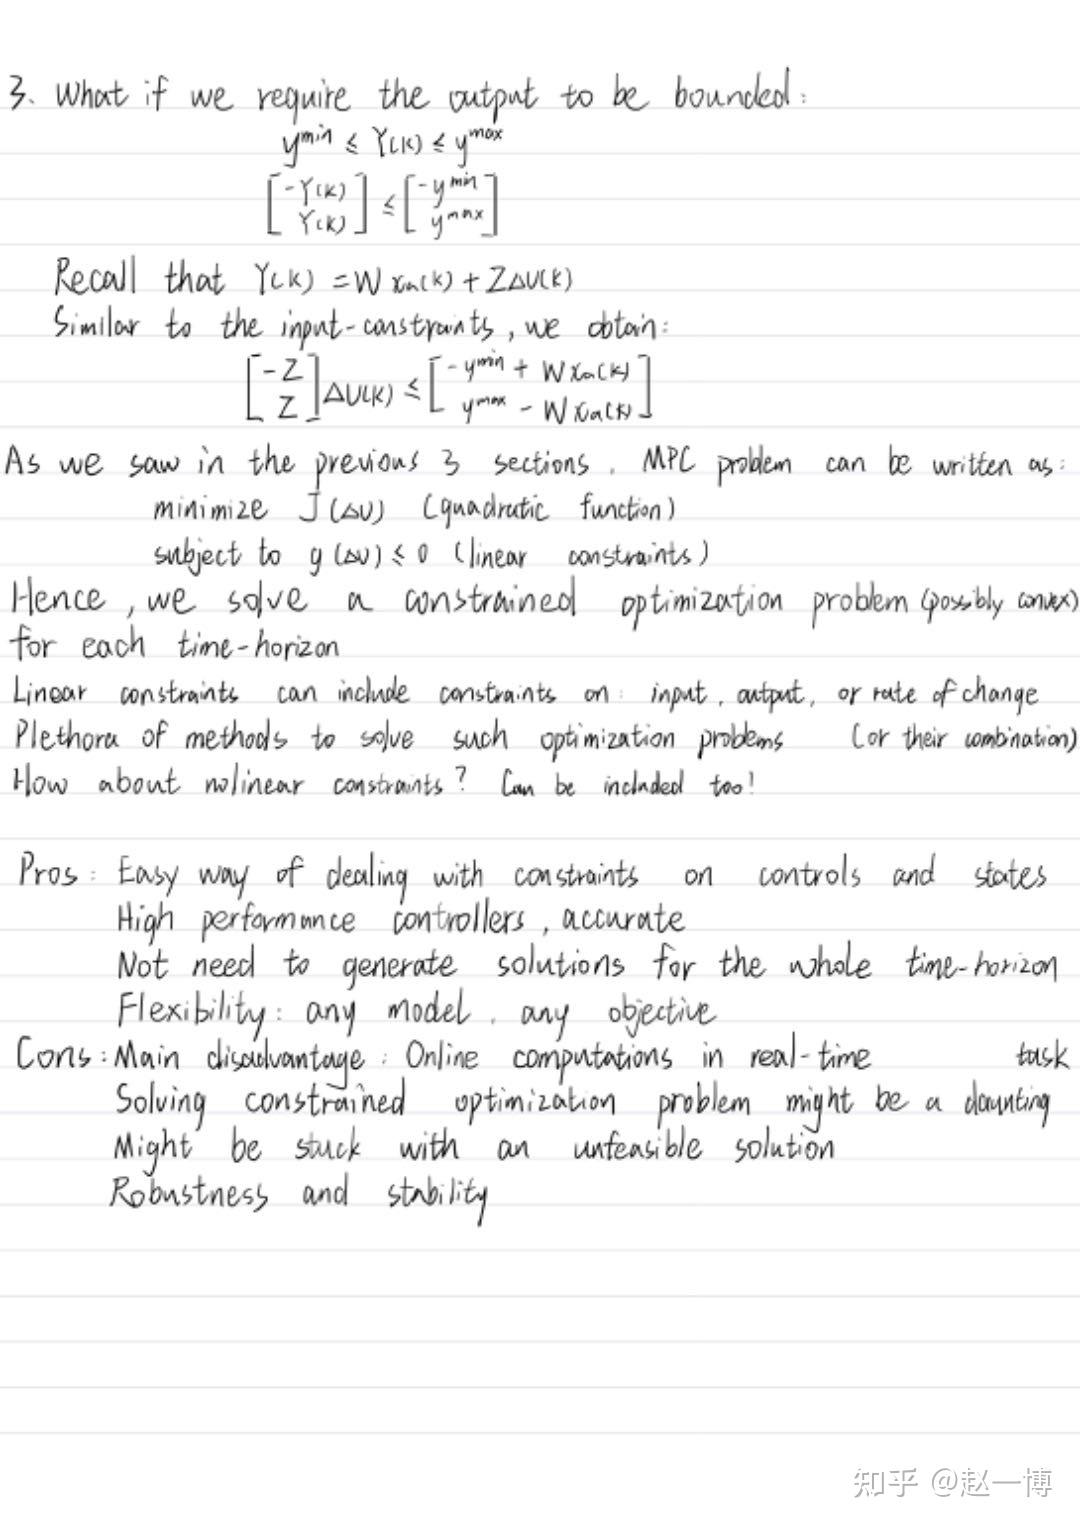 3. What if we require the output to be bounded:
y^min ≤ Y(k) ≤ y^max
[-Y(k); Y(k)] ≤ [-y^min; y^max]
Recall that Y(k) = W xa(k) + ZΔU(k)
Similar to the input-constraints, we obtain:
[-Z; Z] ΔU(k) ≤ [-y^min + W xa(k); y^max - W xa(k)]
As we saw in the previous 3 sections, MPC problem can be written as:
minimize J(ΔU) (quadratic function)
subject to g(ΔU) ≤ 0 (linear constraints)
Hence, we solve a constrained optimization problem (possibly convex)
for each time-horizon
Linear constraints can include constraints on: input, output, or rate of change
Plethora of methods to solve such optimization problems (or their combination)
How about nolinear constraints? Can be included too!
Pros: Easy way of dealing with constraints on controls and states
High performance controllers, accurate
Not need to generate solutions for the whole time-horizon
Flexibility: any model, any objective
Cons: Main disadvantage: Online computations in real-time task
Solving constrained optimization problem might be a daunting
Might be stuck with an unfeasible solution
Robustness and stability
知乎 @赵一博